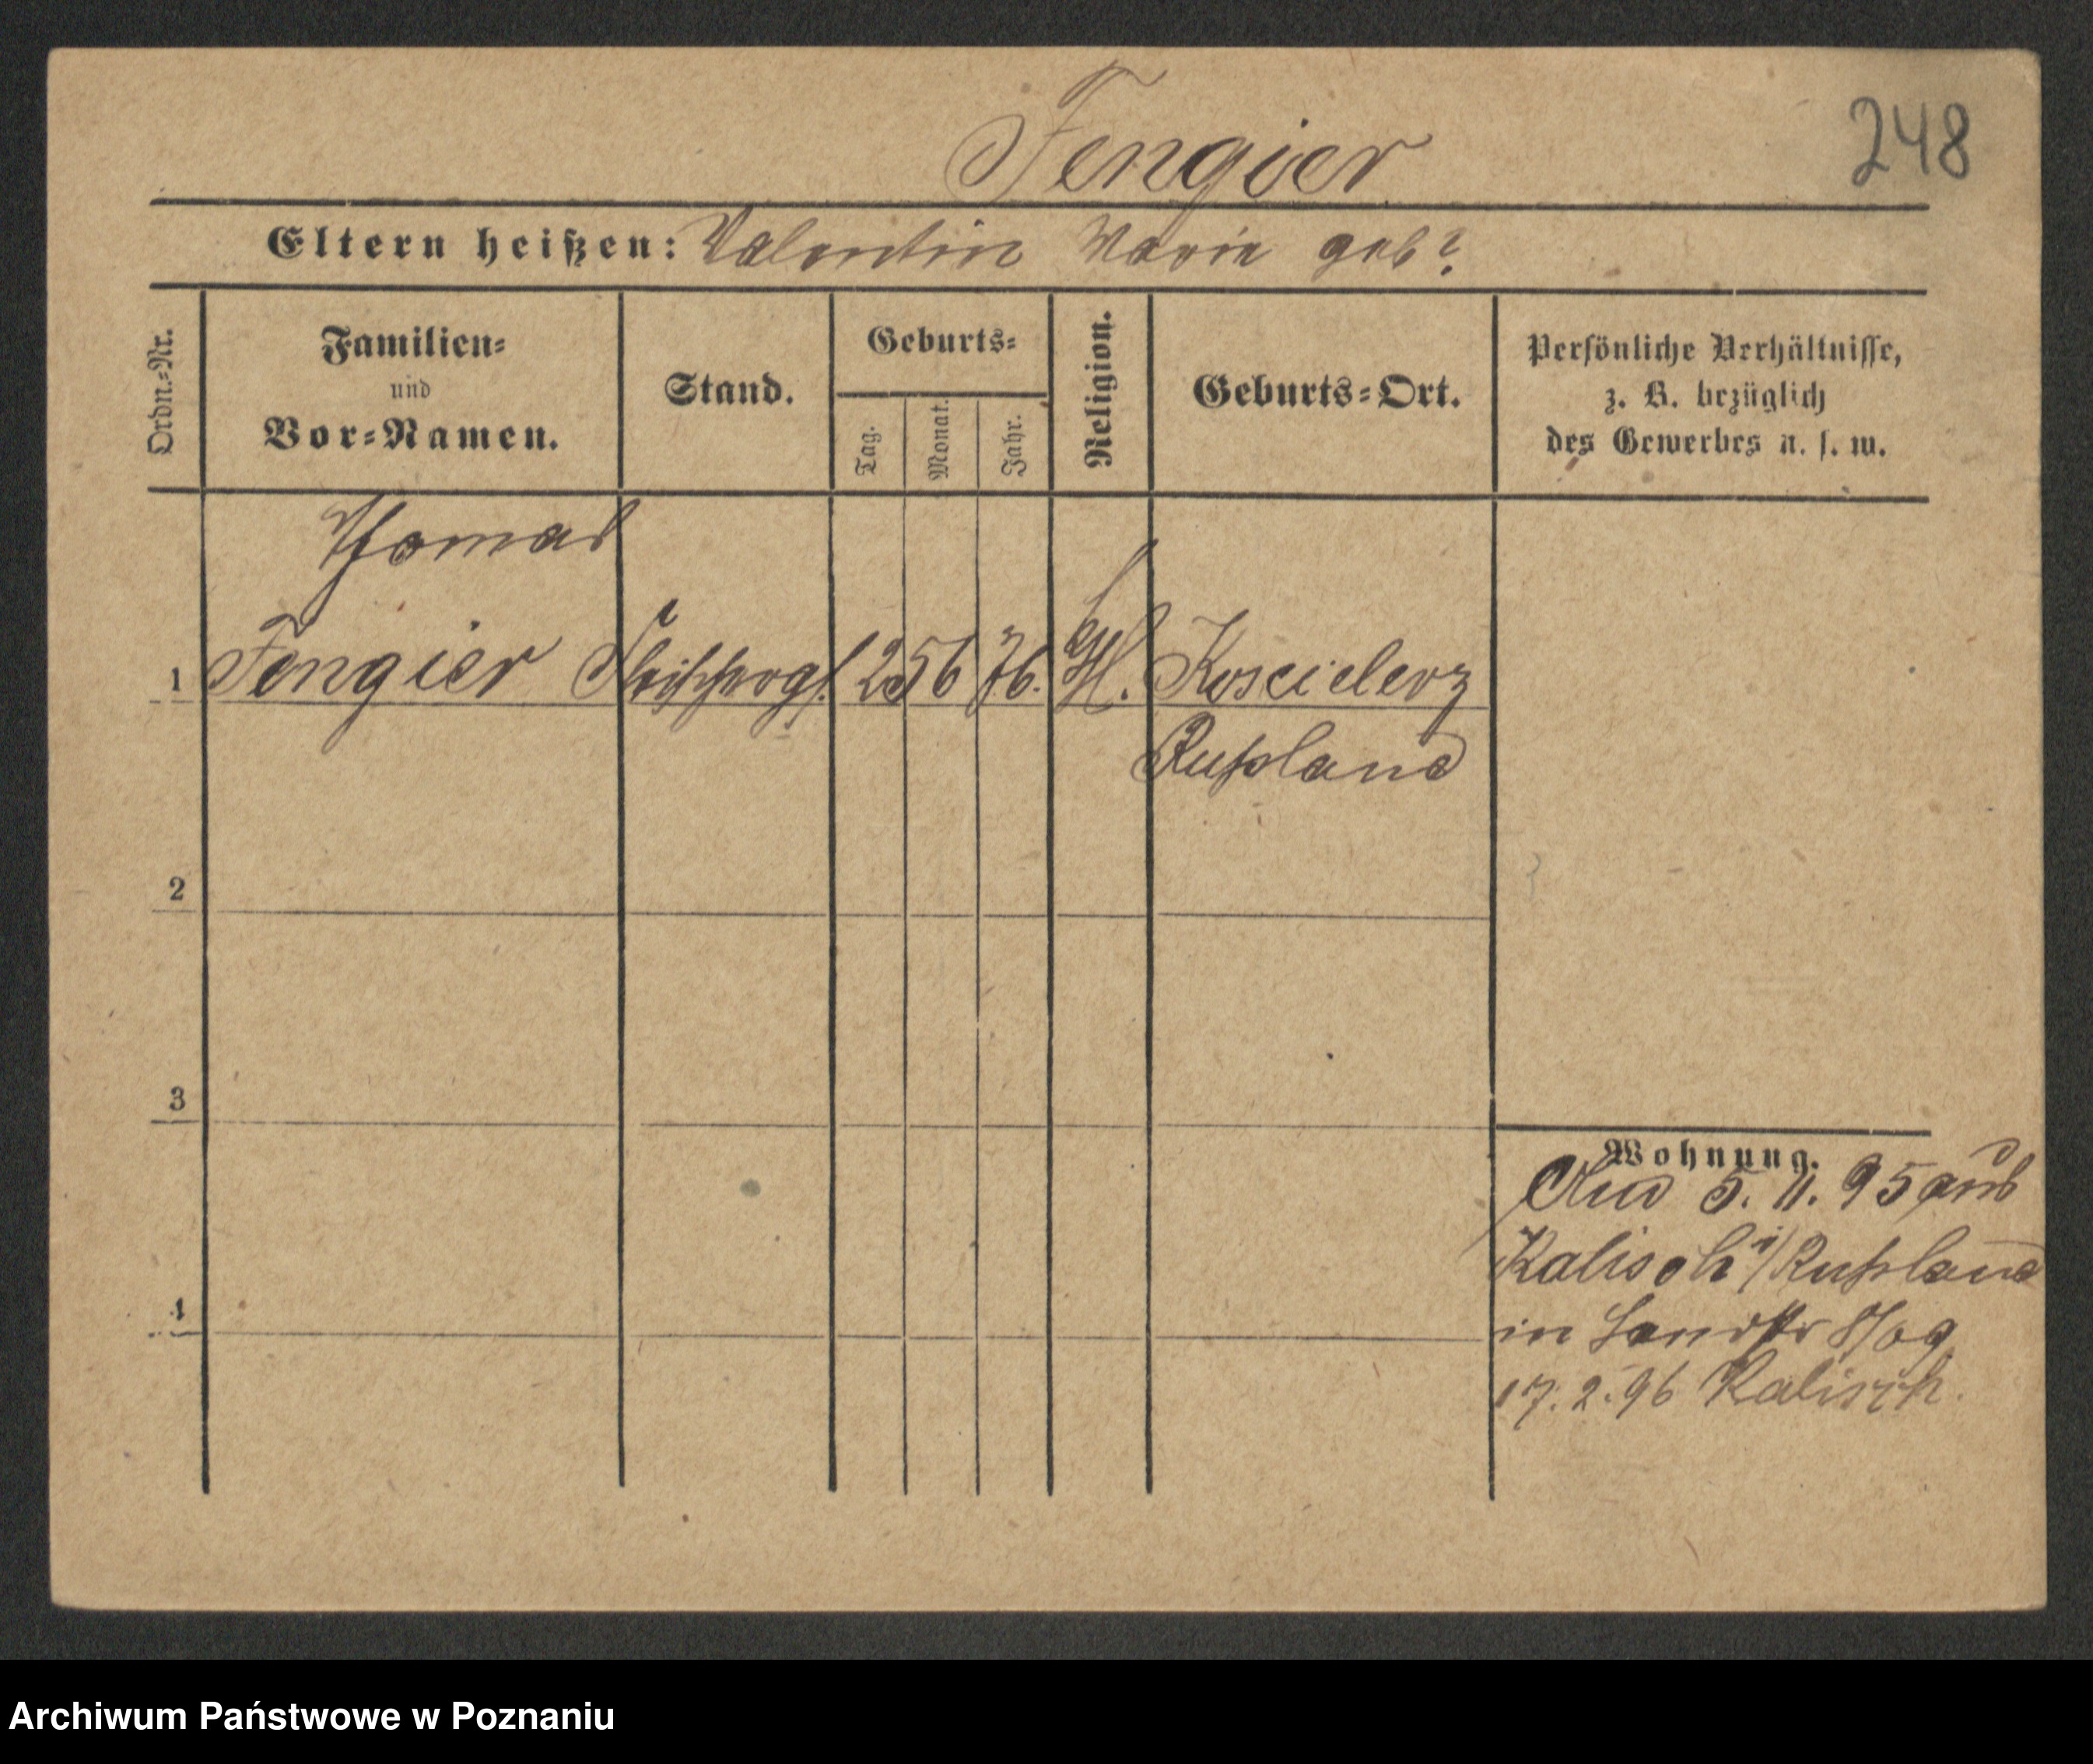 Fengier
248
Eltern heißen: Valentin Marie geb?
Ordn.-Nr.
Familien-
und
Vor-Namen.
Stand.
Geburts-
Tag.
Monat.
Jahr.
Religion.
Geburts-Ort.
Persönliche Verhältnisse,
z. B. bezüglich
des Gewerbes u. s. w.
Thomas
1 Fengier 25 6 76. Koscielerz
Rußland
2
3
4
Wohnung.
5. 11. 95 aus
Kalisch i/Rußland
in
17. 2. 96 Kalisch.
Archiwum Państwowe w Poznaniu